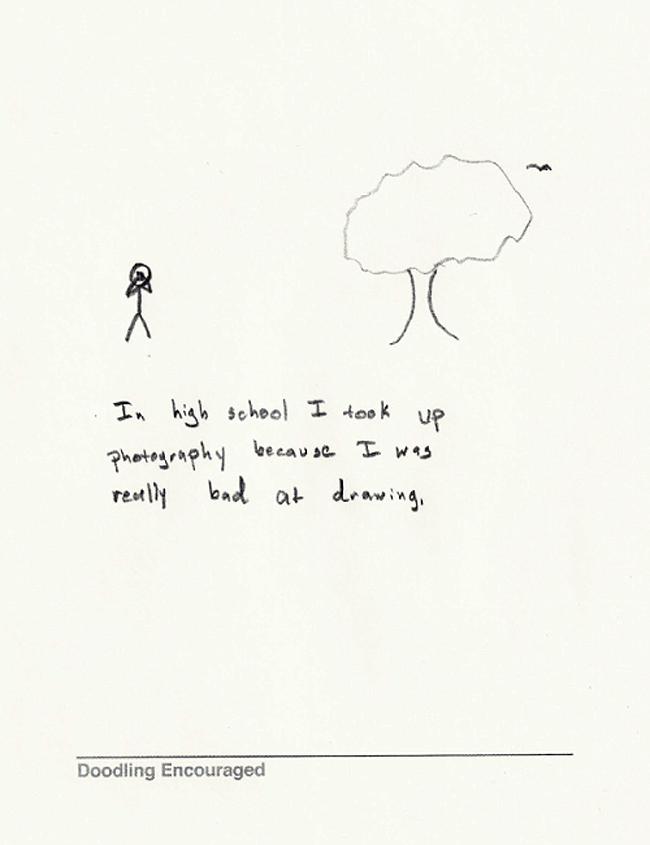 In high school I took up
photography because I was
really bad at drawing.
Doodling Encouraged